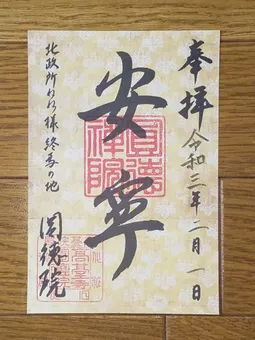 奉拝 令和三年二月一日
安寧
圓德禅院
北政所ねね様終焉の地
圓徳院